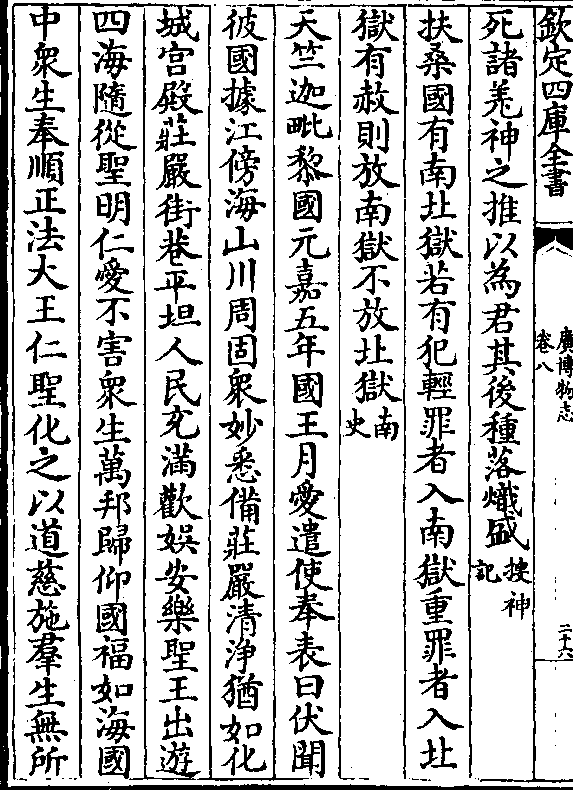 欽定四庫全書
廣博物志
卷八
二十六
死諸羌神之推以為君其後種落熾盛搜神記
扶桑國有南北獄若有犯輕罪者入南獄重罪者入北
獄有赦則放南獄不放北獄南史
天竺迦毗黎國元嘉五年國王月愛遣使奉表曰伏聞
彼國據江傍海山川周固衆妙悉備莊嚴清淨猶如化
城宫殿莊嚴街巷平坦人民充滿歡娛安樂聖王出遊
四海隨從聖明仁愛不害衆生萬邦歸仰國福如海國
中衆生奉順正法大王仁聖化之以道慈施羣生無所